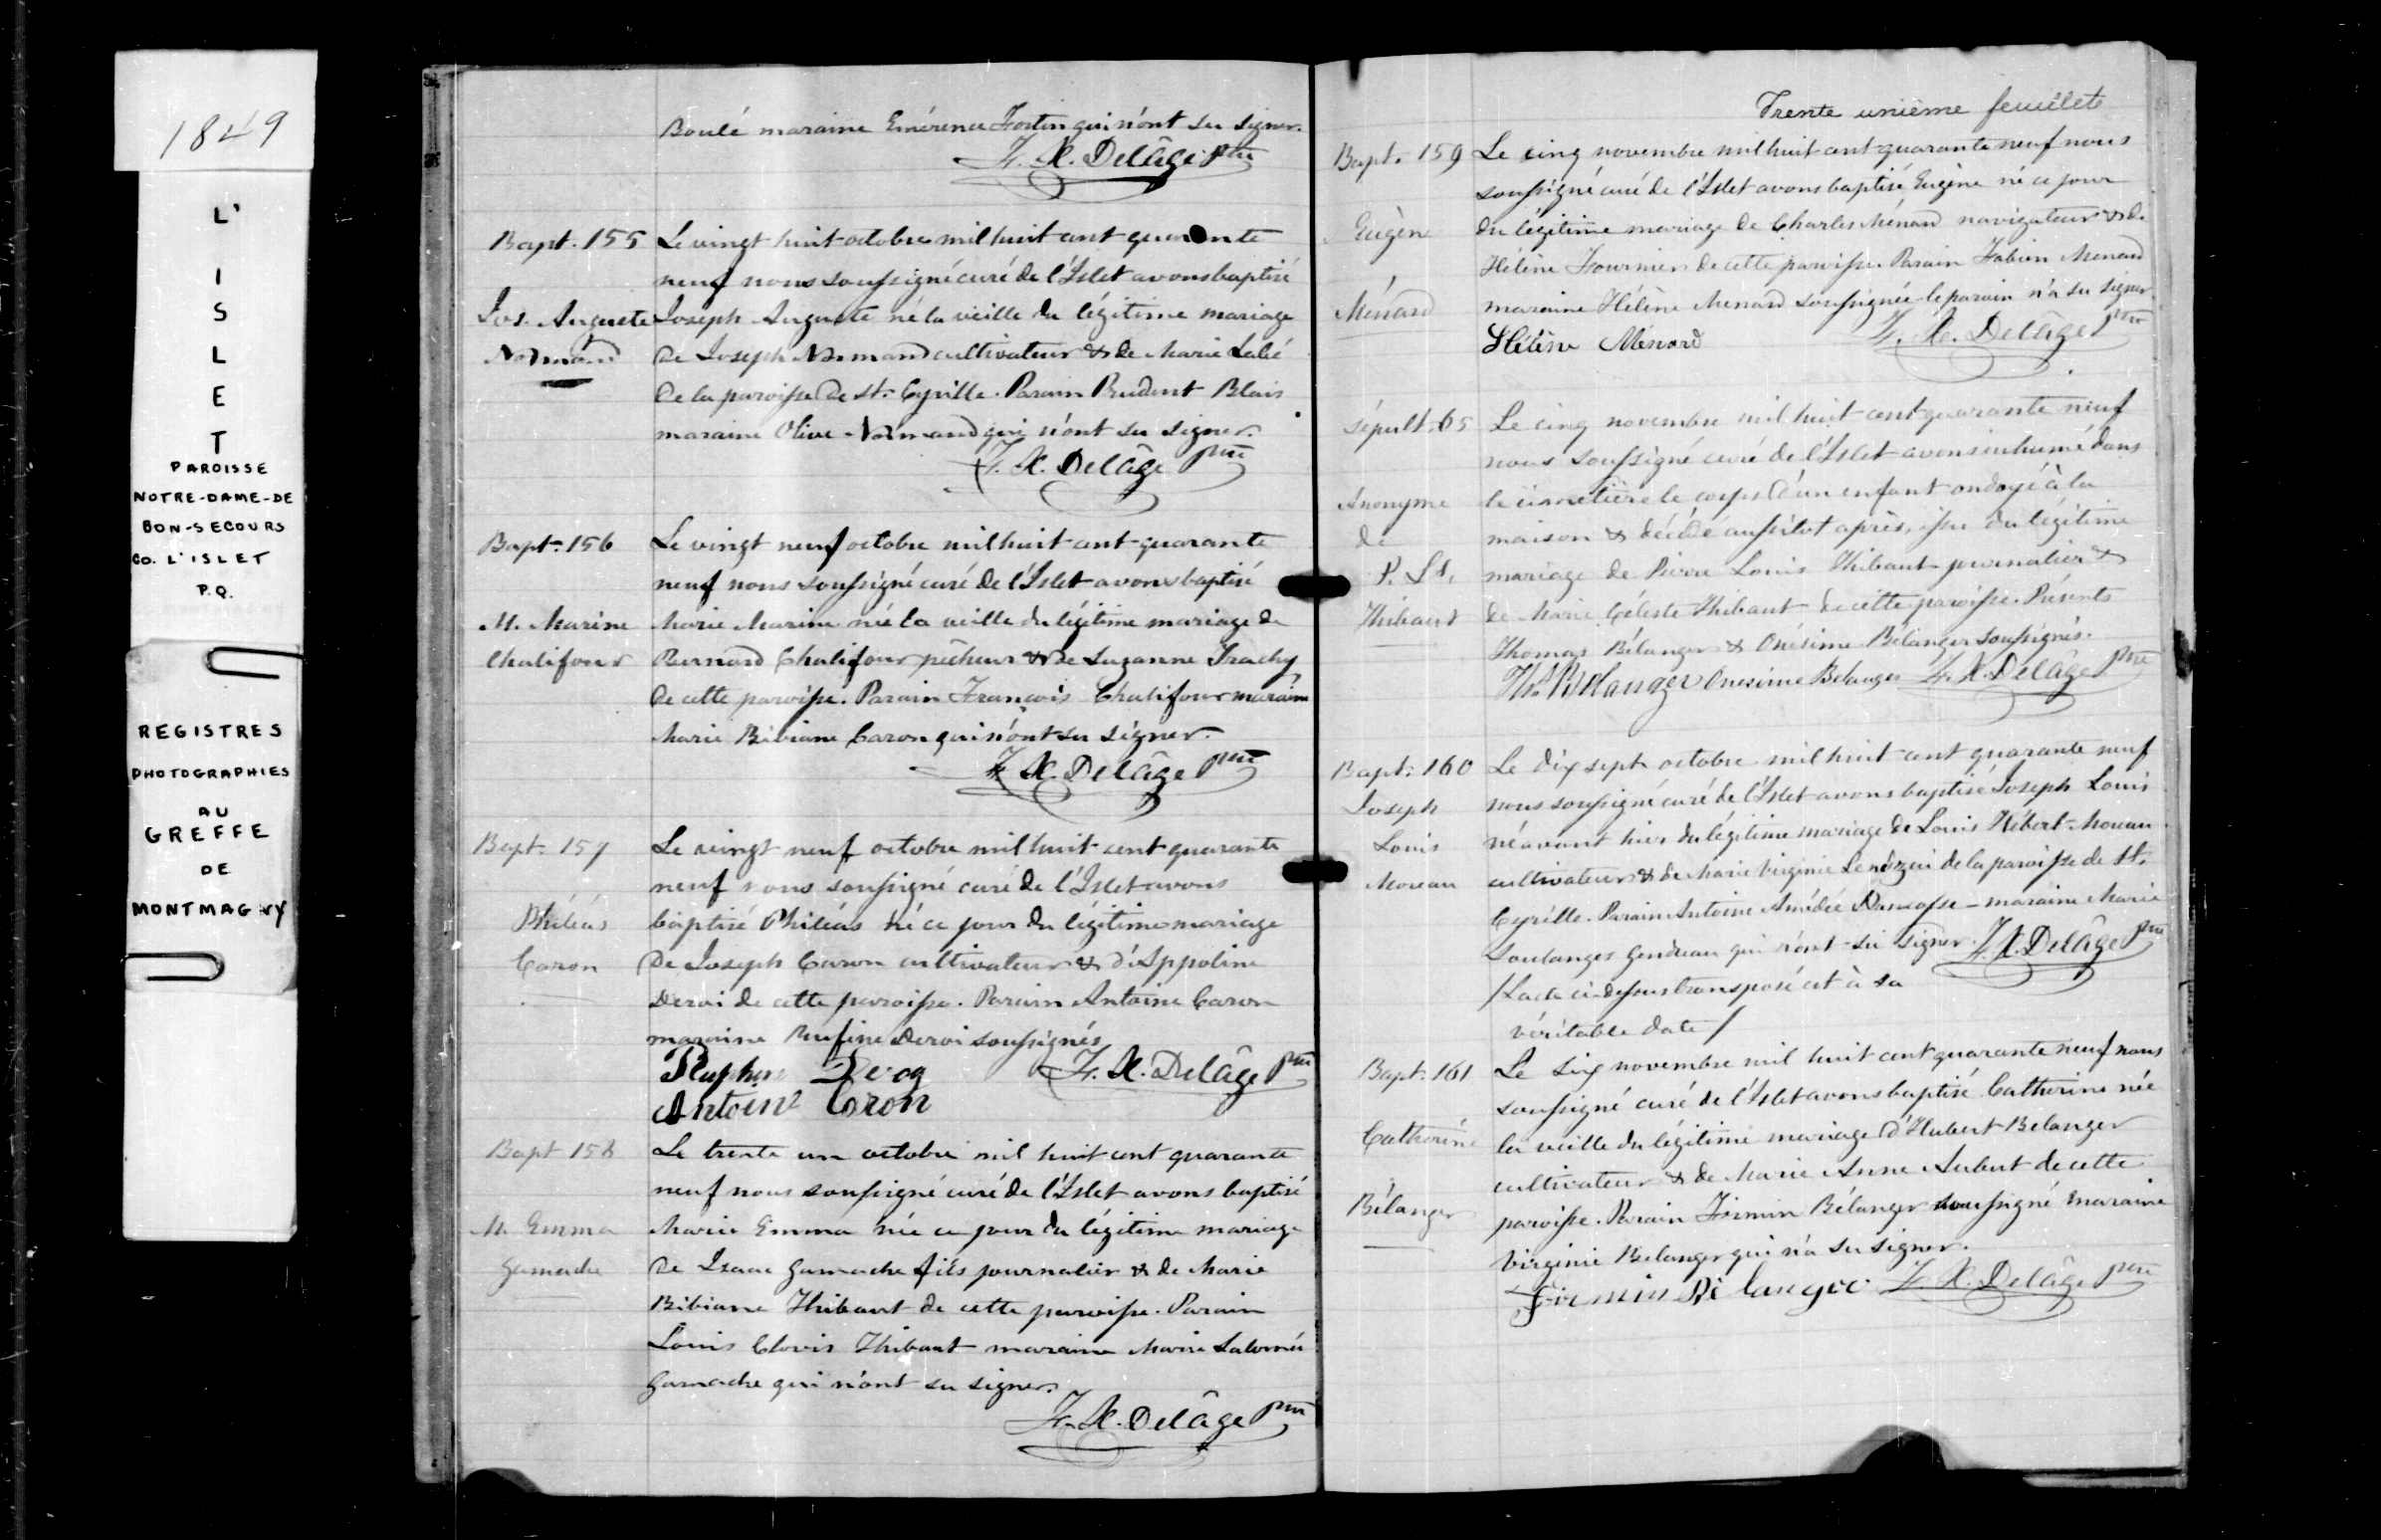 1849
L'
I
S
L
E
T
PAROISSE
NOTRE-DAME-DE
BON-SECOURS
CO. L'ISLET
P.Q.
REGISTRES
PHOTOGRAPHIES
AU
GREFFE
DE
MONTMAGNY
Boulé maraine Emérence Fortin qui n'ont su signer.
F. X. Delâge Ptre
Bapt. 155
Jos. Auguste
Normand
Le vingt huit octobre mil huit cent quarante
neuf nous soussigné curé de l'Islet avons baptisé
Joseph Auguste né la veille du légitime mariage
de Joseph Normand cultivateur & de Marie
de la paroisse de St. Cyrille. Parain Prudent Blais
maraine Olive Normand qui n'ont su signer.
F. X. Delâge Ptre
Bapt. 156
M. Marine
Chalifour
Le vingt neuf octobre mil huit cent quarante
neuf nous soussigné curé de l'Islet avons baptisé
Marie Marine née la veille du légitime mariage de
Bernard Chalifour pêcheur & de Suzanne Trachy
de cette paroisse. Parain François Chalifour maraine
Marie Bibiane Caron qui n'ont su signer.
F. X. Delâge Ptre
Bapt. 157
Philéas
Caron
Le vingt neuf octobre mil huit cent quarante
neuf nous soussigné curé de l'Islet avons
baptisé Philéas né ce jour du légitime mariage
de Joseph Caron cultivateur & d'Appoline
Deroi de cette paroisse. Parain Antoine Caron
maraine Rufine Deroi soussignés
F. X. Delâge Ptre
Antoine Coron
Bapt 158
M. Emma
Gamache
Le trente un octobre mil huit cent quarante
neuf nous soussigné curé de l'Islet avons baptisé
Marie Emma née ce jour du légitime mariage
de Isaac Gamache fils journalier & de Marie
Bibiane Thibaut de cette paroisse. Parain
Louis Clovis Thibaut maraine Marie Salomée
Gamache qui n'ont su signer.
F. X. Delâge Ptre
Trente unième feuillete
Bapt. 159
Eugène
Ménard
Le cinq novembre mil huit cent quarante neuf nous
soussigné curé de l'Islet avons baptisé Eugène né ce jour
du légitime mariage de Charles Ménard navigateur & de
Hélène Fournier de cette paroisse. Parain Fabien Menard
maraine Hélène Menard soussignée le parain n'a su signer
Hélène Ménard F. X. Delâge Ptre
Sépult. 65
Anonyme
de
P. Ls.
Thibaut
Le cinq novembre mil huit cent quarante neuf
nous soussigné curé de l'Islet avons inhumé dans
le cimetière le corps d'un enfant ondoyé à la
maison & décédé aussitot après, issu du légitime
mariage de Pierre Louis Thibaut journalier &
de Marie Céleste Thibaut de cette paroisse. Présents
Thomas Bélanger & Onésime Bélanger soussignés.
Ths Bélanger Onesime Belanger F. X. Delâge Ptre
Bapt. 160
Joseph
Louis
Moreau
Le dix sept octobre mil huit cent quarante neuf
nous soussigné curé de l'Islet avons baptisé Joseph Louis
né avant hier du légitime mariage de Louis Hébert Moreau
cultivateur & de Marie Virginie de la paroisse de St.
Cyrille. Parain Antoine Amédée maraine Marie
Soulanges Gendreau qui n'ont su signer. F. X. Delâge Ptre
/L'acte ci-dessus transposé est à sa
véritable date/
Bapt. 161
Catherine
Bélanger
Le six novembre mil huit cent quarante neuf nous
soussigné curé de l'Islet avons baptisé Catherine née
la veille du légitime mariage d'Hubert Belanger
cultivateur & de Marie Anne Aubut de cette
paroisse. Parain Firmin Bélanger soussigné maraine
Virginie Belanger qui n'a su signer.
Firmin Bélanger F. X. Delâge Ptre